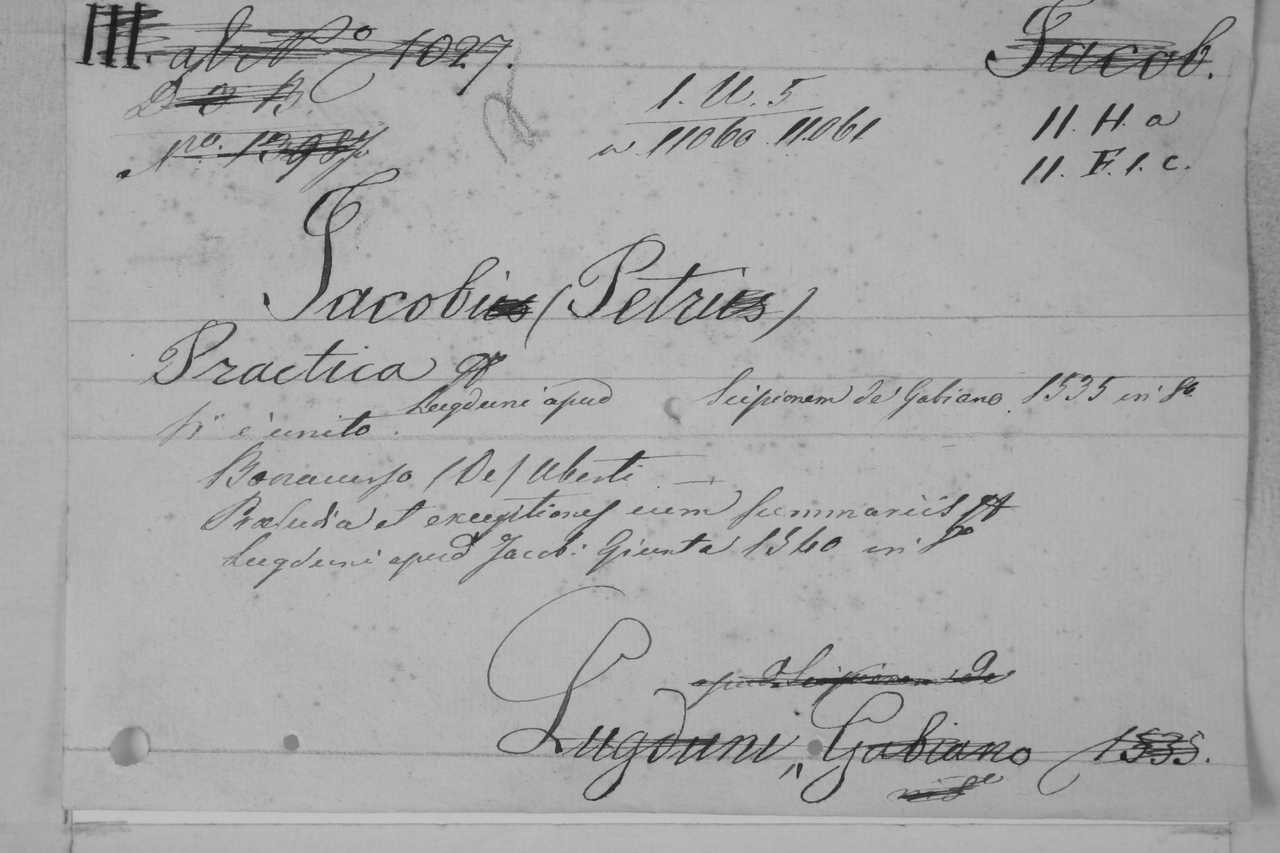 III. ab. No 1027. Jacob.
D o B. 1. U. 5 11. H. a
No. 13987 a 11060 11061 11. F. 1. c.
Jacobius (Petrius)
Practica
Lugduni apud Scipionem de Gabiano 1535 in 8o
è unito.
Bonacurso (De) Uberti
Præludia et exceptiones cum summariis
Lugduni apud Jacob: Giunta 1540 in 8o
apud Scipionem de
Lugduni, Gabiano 1535.
in 8o